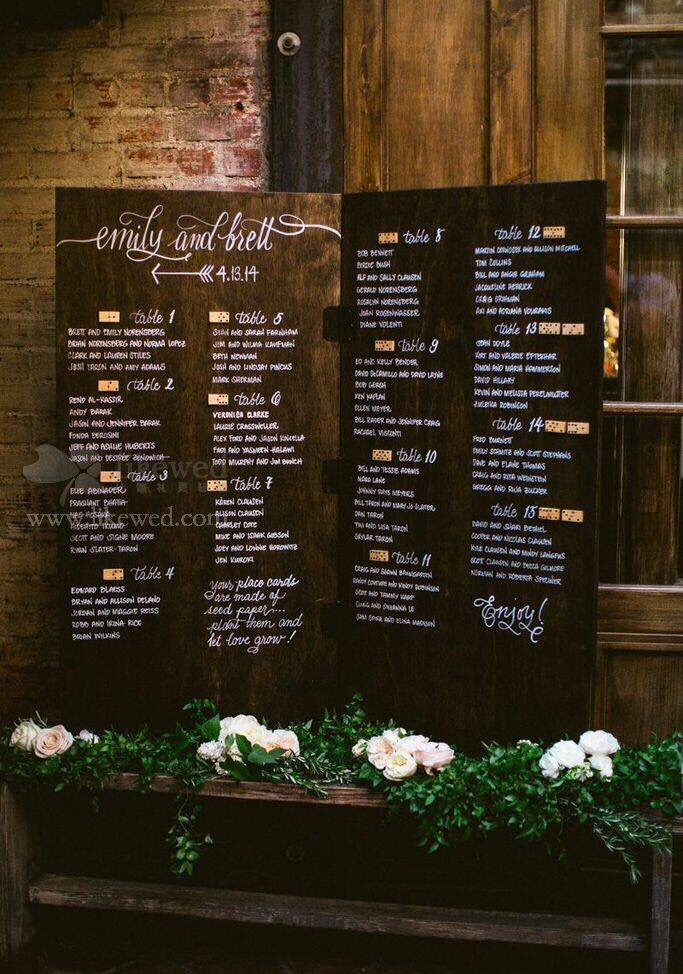 emily and brett
4.13.14
table 1
BRETT AND EMILY NORENSBERG
BRIAN NORENSBERG AND NORMA LOPEZ
CLARK AND LAUREN STILES
JOSH TARON AND AMY ADAMS
table 2
REND AL-KASSIR
ANDY BARAK
JASON AND JENNIFER BARAK
FONDA
JEFF AND ASHLIE HUBERTS
JASON AND DESIRÉE
table 3
ELIE ABNADER
PRASHANT BHATIA
SCOT AND SIGNE MOORE
RYAN SLATER-TARON
table 4
EDWARD BLARSS
BRYAN AND ALLISON DELANO
JORDAN AND MAGGIE REISS
ROBB AND IRINA RICE
BRIAN WILKINS
table 5
SEAN AND SARAH FARNHAM
JIM AND WILMA KAUFMAN
BETH NEWMAN
JOSH AND LINDSAY PINCUS
MARK SHERMAN
table 6
VERONICA CLARKE
LAURIE CRAGSWELLER
ALEX FORD AND JASON KINCELLA
FADI AND YASMEEN HALAWI
TODD MURPHY AND JIM BUNCH
table 7
KAREN CLAUSEN
ALISON CLAUSEN
CHARLEY COTE
MIKE AND ISAAK GIBSON
JOEY AND LONNIE HOROWITZ
JEN KUROKI
your place cards
are made of
seed paper...
plant them and
let love grow!
table 8
BOB BENNETT
BIRDIE BUSH
ALF AND SALLY CLAUSEN
GERALD NORENSBERG
ROSALYN NORENSBERG
JOAN ROSENWASSER
DIANE VOLENTI
table 9
ED AND KELLY BENDER
DAVID DECAMILLO AND DAVID LAYNE
BOB GERGH
KEN KAPLAN
ELLEN MEYER
BILL RADER AND JENNIFER CRAIG
RACHAEL VISCONTI
table 10
BILL AND JESSIE ADAMS
MARA LANE
JOHNNY RHYS MEYERS
BILL TARON AND MARY JO SLATER
DAN TARON
TIM AND LISA TARON
SKYLAR TARON
table 11
CRAIG AND SHAWN BAUMGARTEN
RANDY COUTURE AND MINDY ROBINSON
SCOT AND TAMMY KARP
CHRIS AND SHEANNA LE
SAM SPIRA AND ELINA MADISON
table 12
MARTIN CORNGEER AND ALLISON MITCHELL
TOM COLLINS
BILL AND ANGIE GRAHAM
JACQUELINE HERRICK
CRAIG OHMAN
ARI AND ADRIANA VOUKAMIS
table 13
SEAN DOYLE
KIRT AND VALERIE EFTEKHAR
SIMON AND MARIA HAMMERSON
DAVID HILLARY
KEVIN AND MELISSA PERELMUTTER
ZULEIKA ROBINSON
table 14
FRED BURNETT
EMILY SCHMITZ AND SCOT STEPHENS
DAVE AND ELANE THOMAS
CRAIG AND RITA WEINSTEIN
GREGG AND RISA ZUCKER
table 15
DAVID AND SIHAR BETHEL
COOPER AND NICOLAS CLAUSEN
KYLE CLAUSEN AND MINDY LANGHUS
SCOT CLAUSEN AND BECCA GILMORE
NORMAN AND ROBERTA SPEINER
Enjoy!
likewed
www.likewed.com